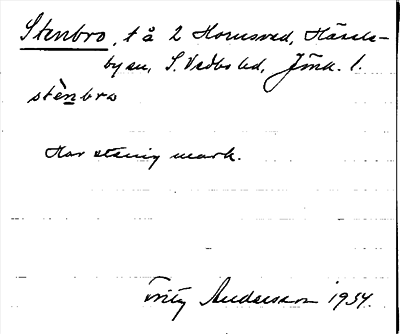 Stenbro, t å 2 Hornsved, Hässle-
byn, S. Vedbo hd, Jönk. l.
stènbro
Har stenig mark.
Fritz Andersson 1934.